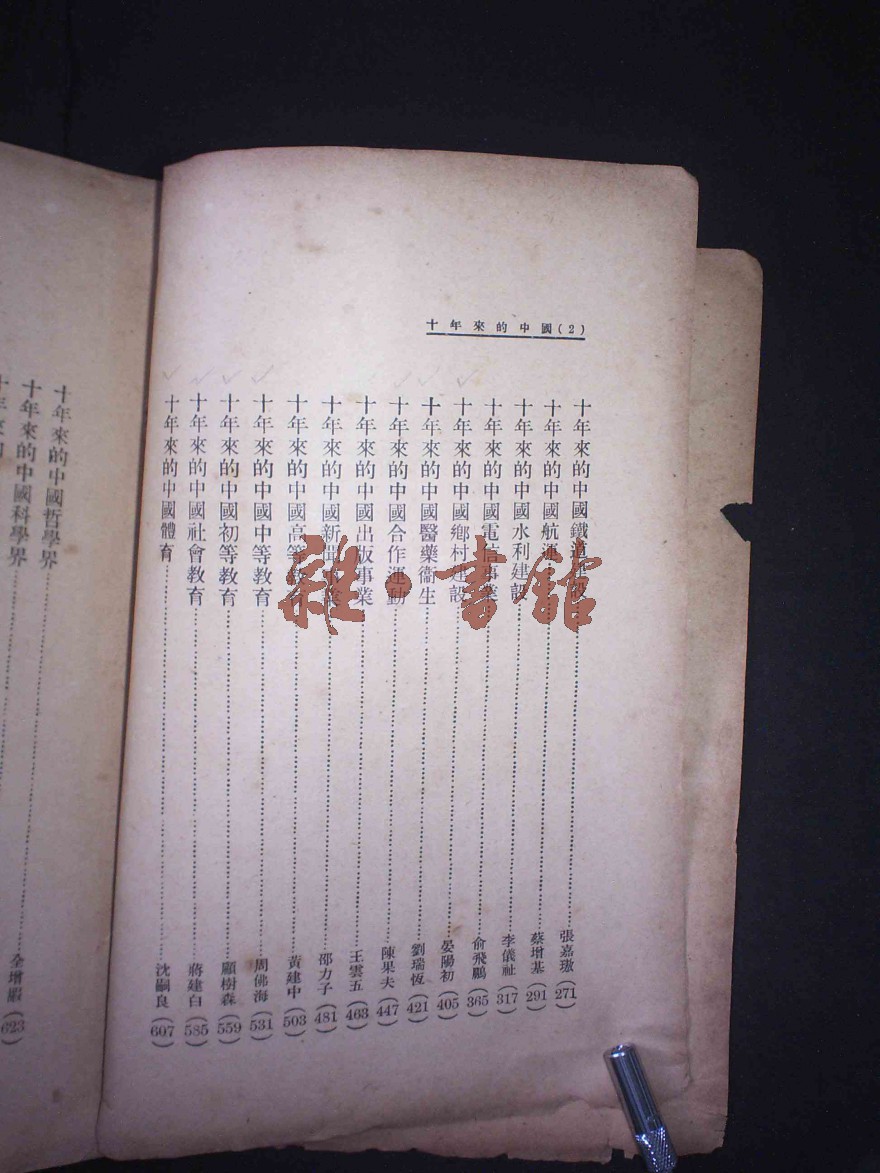 十年來的中國(2)
十年來的中國鐵道建設……張嘉璈(271)
十年來的中國航運……蔡增基(291)
十年來的中國水利建設……李儀祉(317)
十年來的中國電信事業……俞飛鵬(365)
十年來的中國鄉村建設……晏陽初(405)
十年來的中國醫藥衞生……劉瑞恆(421)
十年來的中國合作運動……陳果夫(447)
十年來的中國出版事業……王雲五(463)
十年來的中國新聞事業……邵力子(481)
十年來的中國高等教育……黃建中(503)
十年來的中國中等教育……周佛海(531)
十年來的中國初等教育……顧樹森(559)
十年來的中國社會教育……蔣建白(585)
十年來的中國體育……沈嗣良(607)
十年來的中國哲學界……全增嘏(623)
十年來的中國科學界
雜·書館